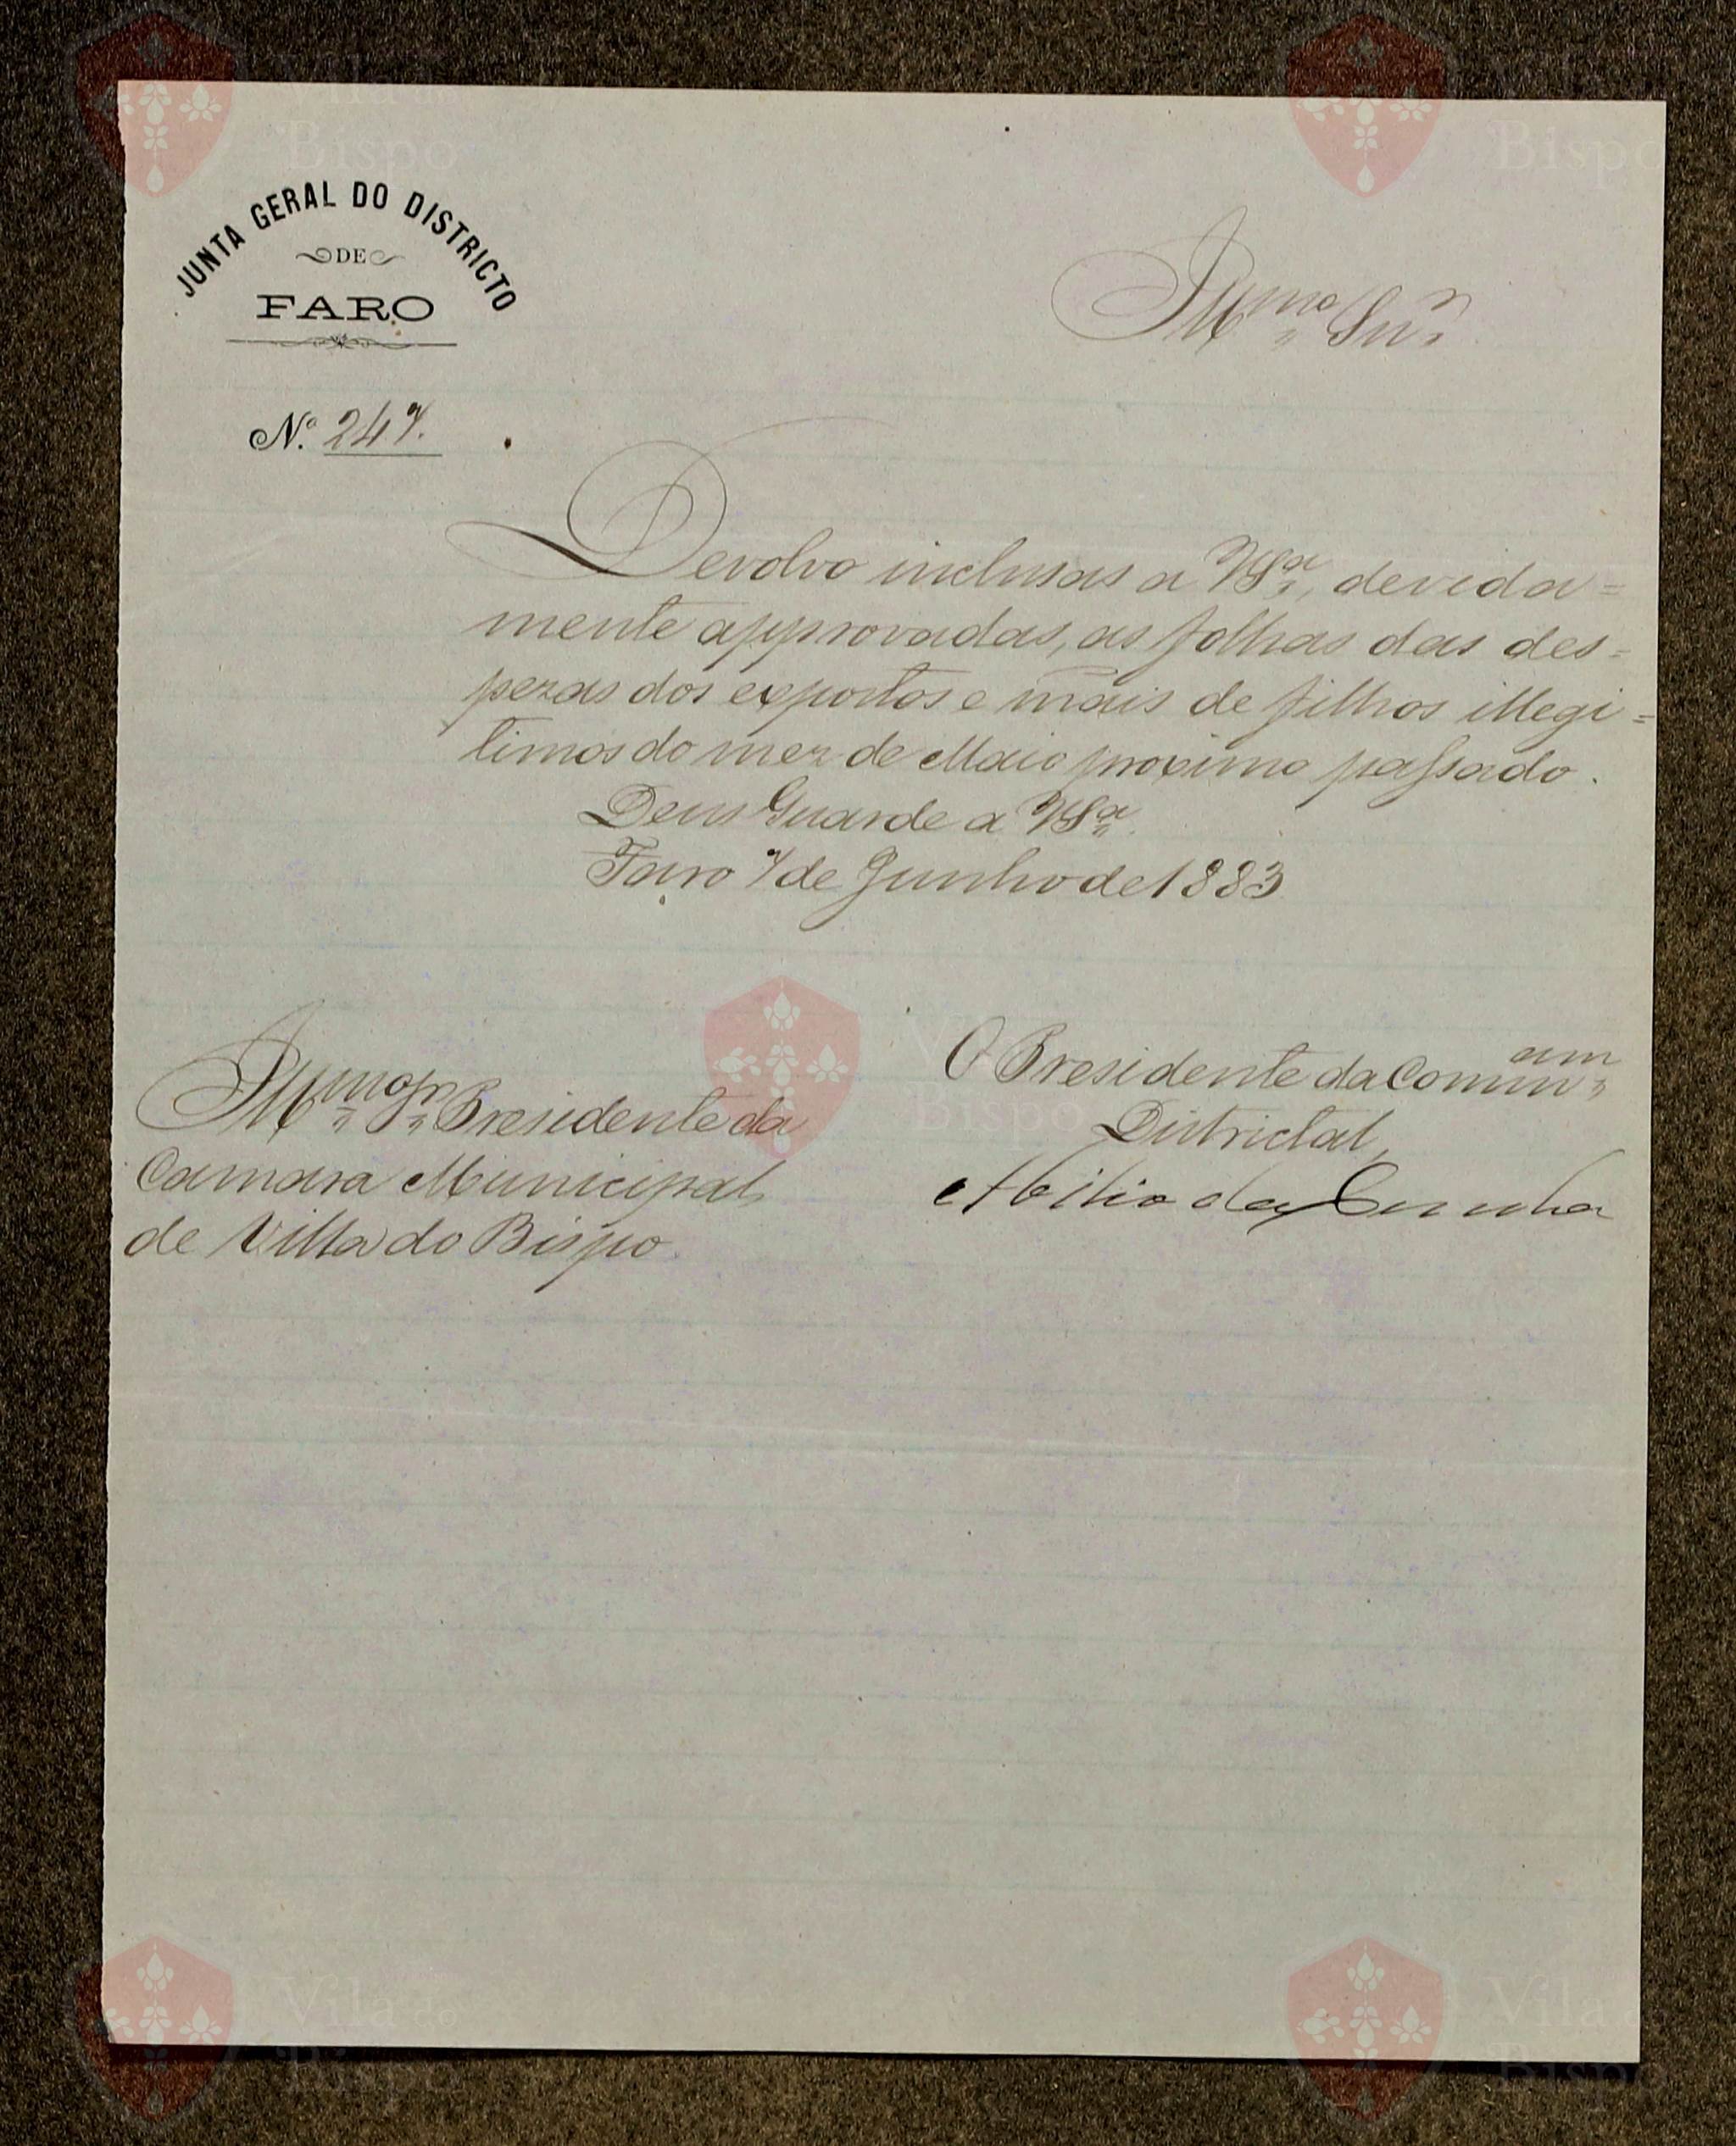 JUNTA GERAL DO DISTRICTO
DE
FARO
Illmo Snr
Nº 247.
Devolvo inclusas a VSª, devida=
mente approvadas, as folhas das des=
pezas dos expostos e mais de filhos illegi=
timos do mez de Maio proximo passado.
Deus Guarde a VSª
Faro 7 de Junho de 1883
O Presidente da Commam
Districtal,
Abilio da Cunha
Illmo Sr Presidente da
Camara Municipal
de Villa do Bispo
Vila do
Bispo